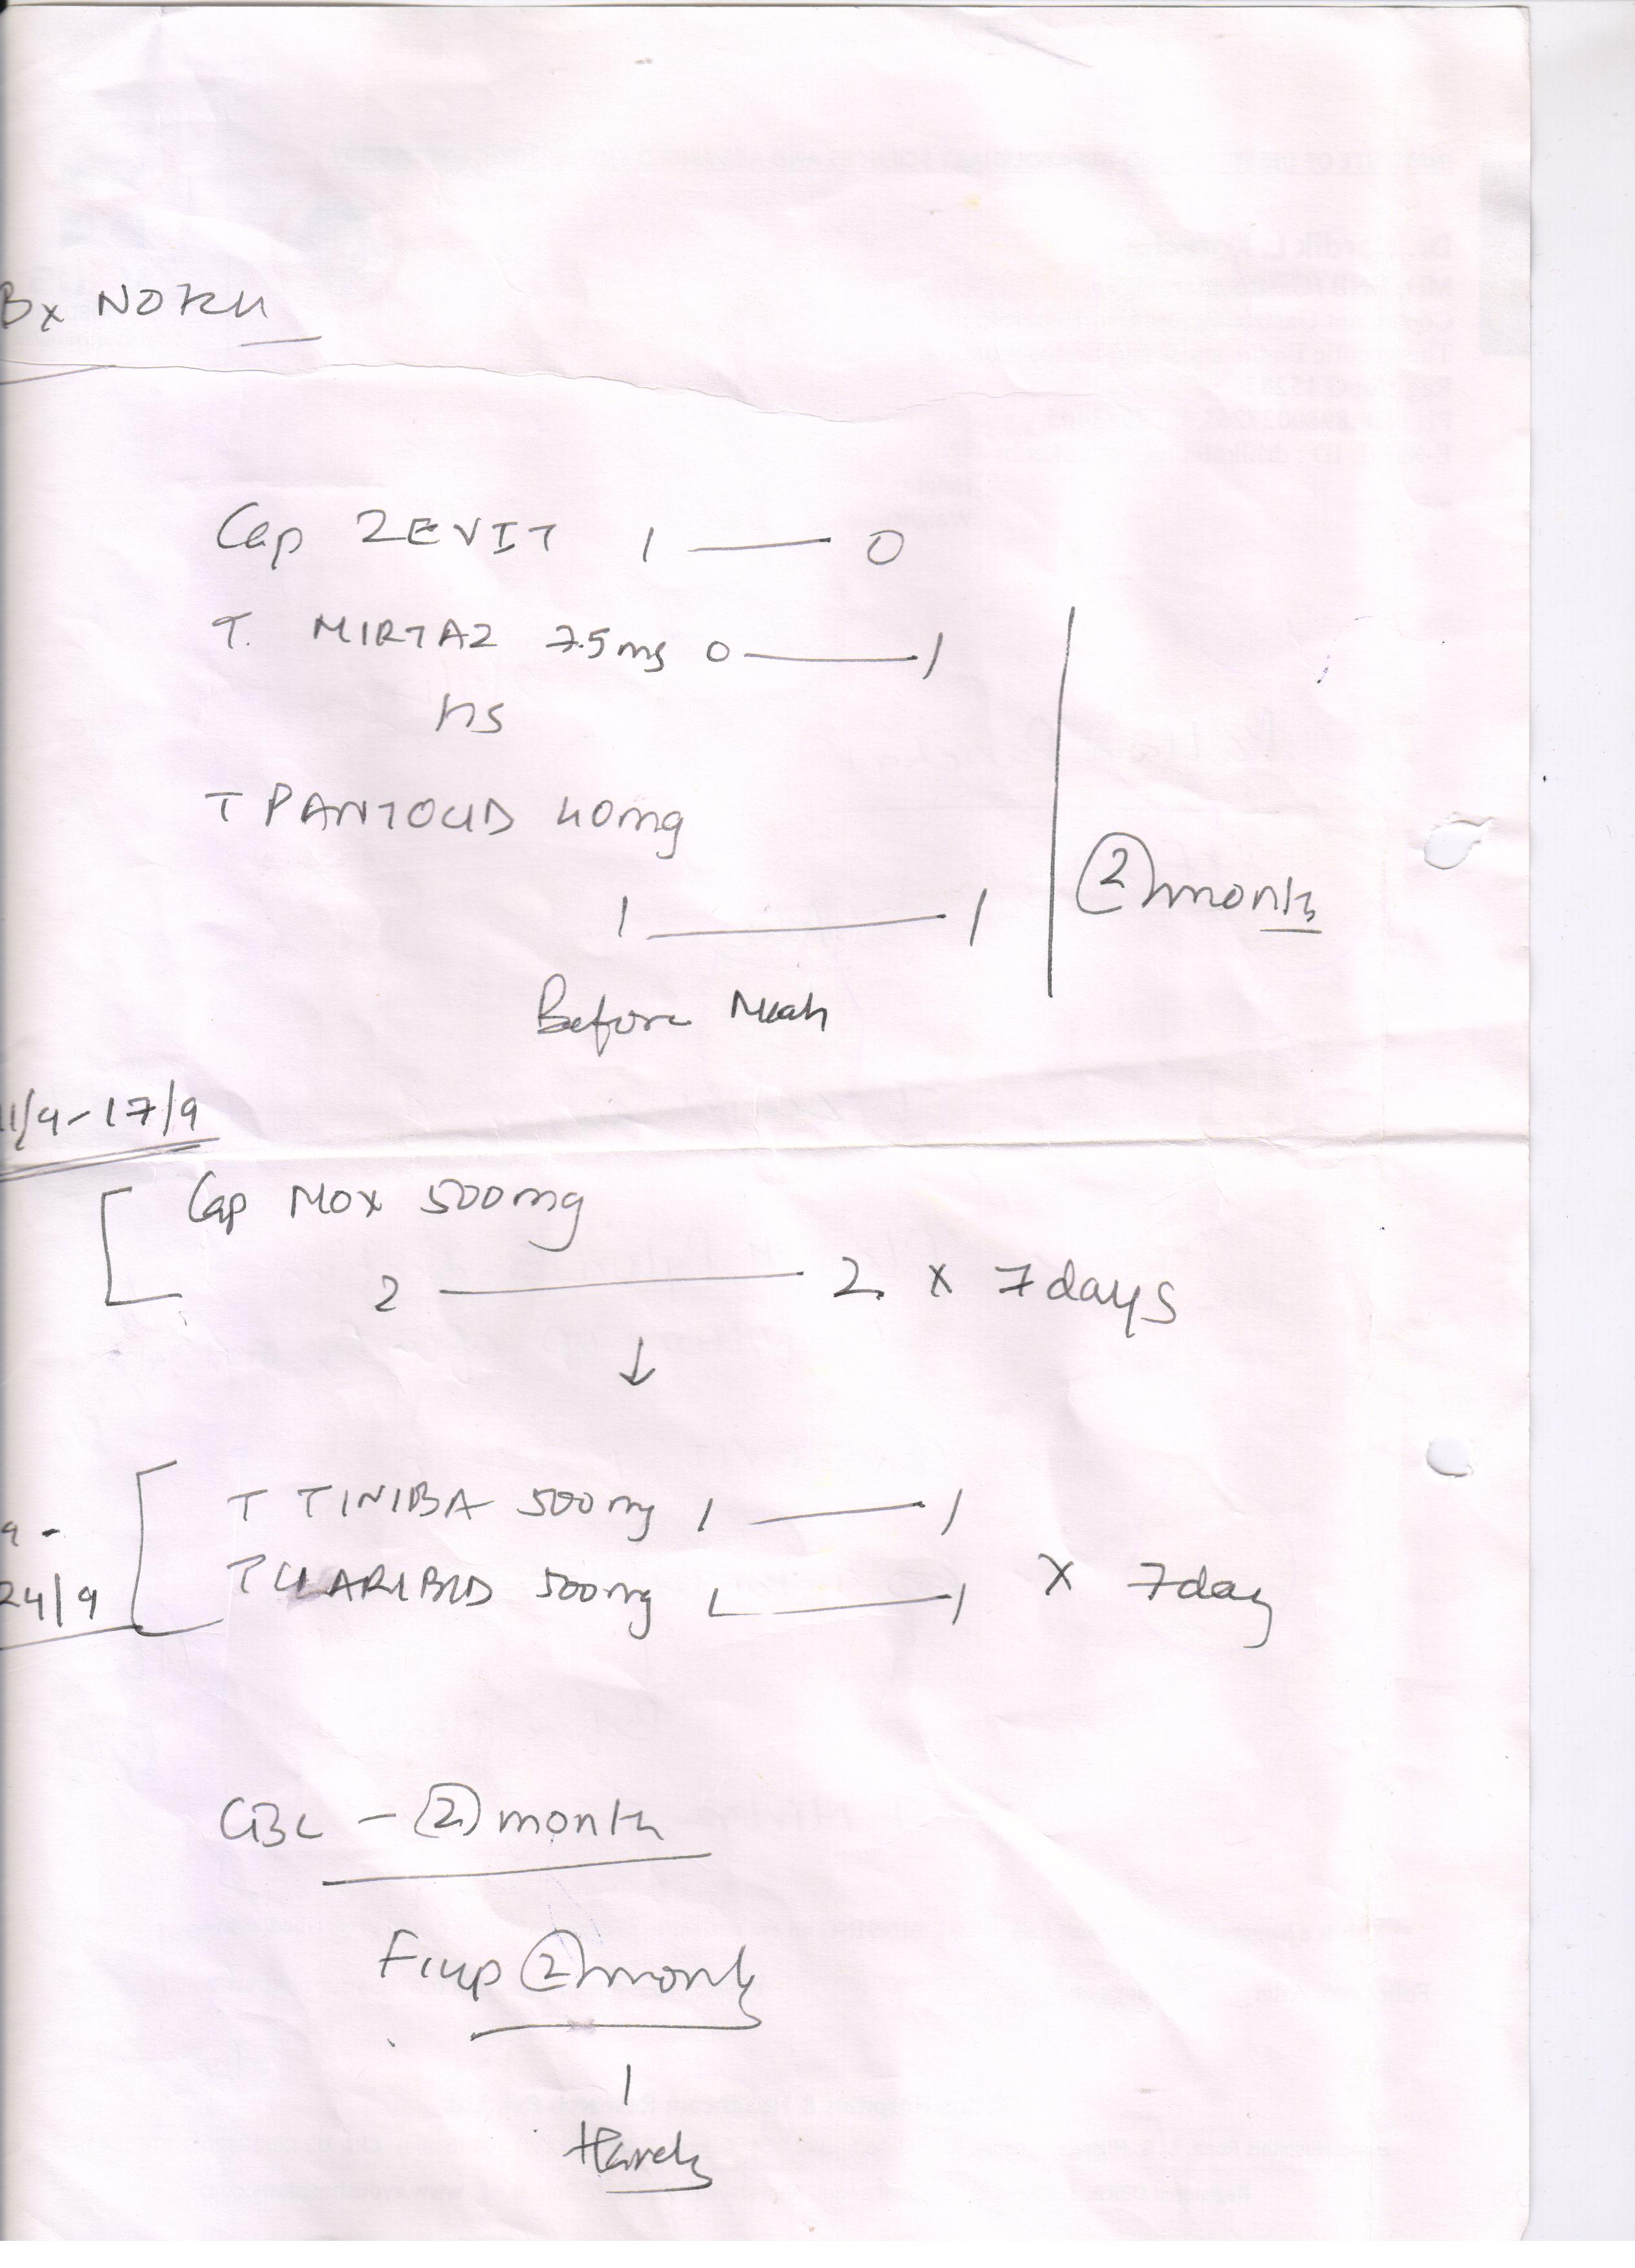 Bx NOTED
Cap ZEVIT 1 — 0
T. MIRTAZ 7.5mg 0 — 1
hs
T PANTOCID 40mg
1 — 1
Before Meals
② months
11/9 - 17/9
Cap MOX 500mg
2 — 2 x 7 days
↓
T TINIBA 500mg 1 — 1
24/9
T CLARIBID 500mg 1 — 1 x 7 day
CBC - ② month
F/up ② month